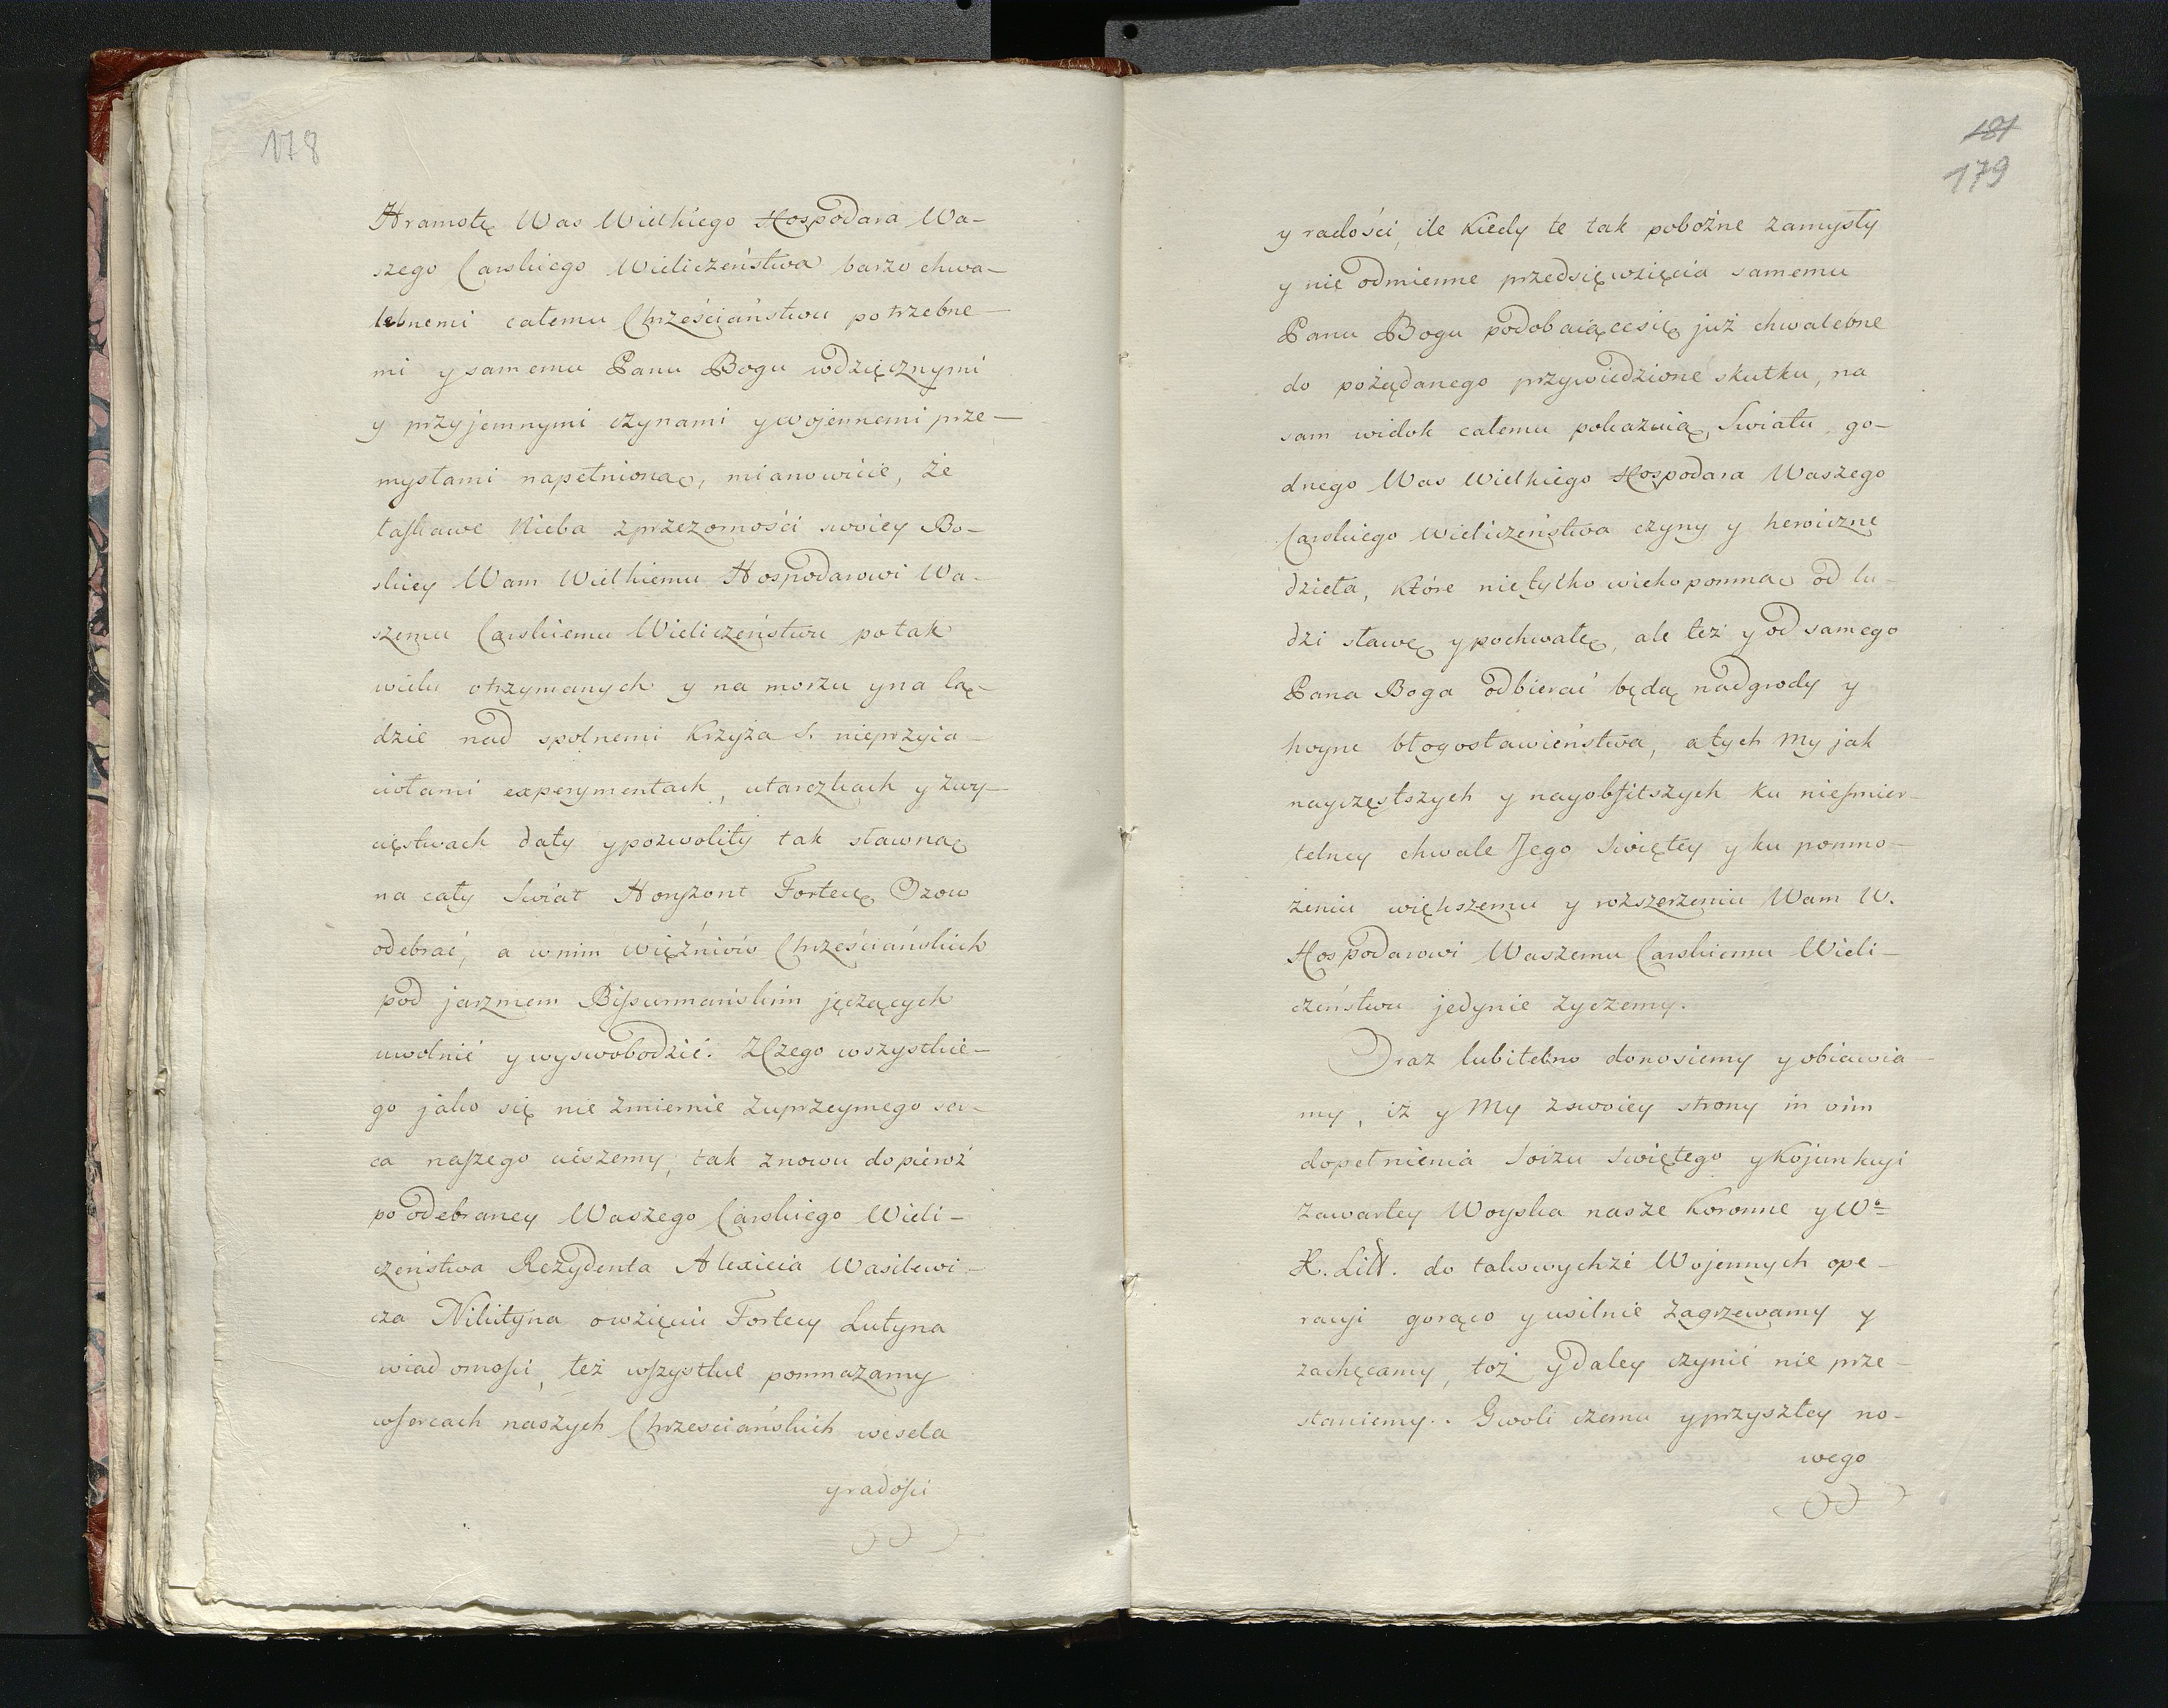 178
Hramotę Was Wielkiego Hospodara Wa-
szego Carskiego Wieliczeństwa barzo chwa-
lebnemi całemu Chrześciaństwu potrzebne-
mi y samemu Panu Bogu wdzięcznymi
y przyjemnymi czynami y wojennemi prze-
mysłami napełnioną, mianowicie, że
łaskawe Nieba z przezorności swoiey Bo-
skiey Wam Wielkiemu Hospodarowi Wa-
szemu Carskiemu Wieliczeństwu po tak
wielu otrzymanych y na morzu y na lą-
dzie nad spolnemi Krzyża S. nieprzyia-
ciołami experymentach, utarczkach y zwy-
cięstwach dały y pozwoliły tak sławną
na cały Swiat Horyzont Fortecę Ozow
odebrać, a w nim więźniów Chrześciańskich
pod jarzmem Bisurmańskim jęczących
uwolnić y wyswobodzić. Z Czego wszystkie-
go jako się nie zmiernie z uprzeymego ser-
ca naszego cieszemy, tak znowu dopieroż
po odebraney Waszego Carskiego Wieli-
czeństwa Rezydenta Alexieia Wasilewi-
cza Nikityna o wzięciu Fortecy Lutyna
wiadomości, też wszystkie pomnażamy
w sercach naszych Chrzesciańskich wesela
y radości
181
179
y radości, ile Kiedy te tak pobożne zamysły
y nie odmienne przedsięwzięcia samemu
Panu Bogu podobaiącesię już chwalebne
do pożądanego przywiedzione skutku, na
sam widok całemu pokazuią Swiatu go-
dnego Was Wielkiego Hospodara Waszego
Carskiego Wieliczeństwa czyny y heroiczne
dzieła, Które nietylko wiekopomną od lu-
dzi sławę y pochwałę, ale też y od samego
Pana Boga odbierać będą nadgrody y
hoyne błogosławieństwa, a tych My jak
nayczęstszych y nayobfitszych ku nieśmier-
telney chwale Jego Swiętey y ku pomno-
żeniu większemu y rozszerzeniu Wam W.
Hospodarowi Waszemu Carskiemu Wieli-
czeństwu jedynie życzemy.
Oraz lubitelno donosiemy y obiawia-
my, iż y My z swoiey strony in vim
dopełnienia Soizu Swiętego y Kojunkcyi
zawartey Woyska nasze Koronne y Wo
X. Litt. do takowychże Wojennych ope-
racyi gorąco y usilnie zagrzewamy y
zachęcamy, toż y daley czynić nie prze-
staniemy. Gwoli czemu y przyszłey no-
wego